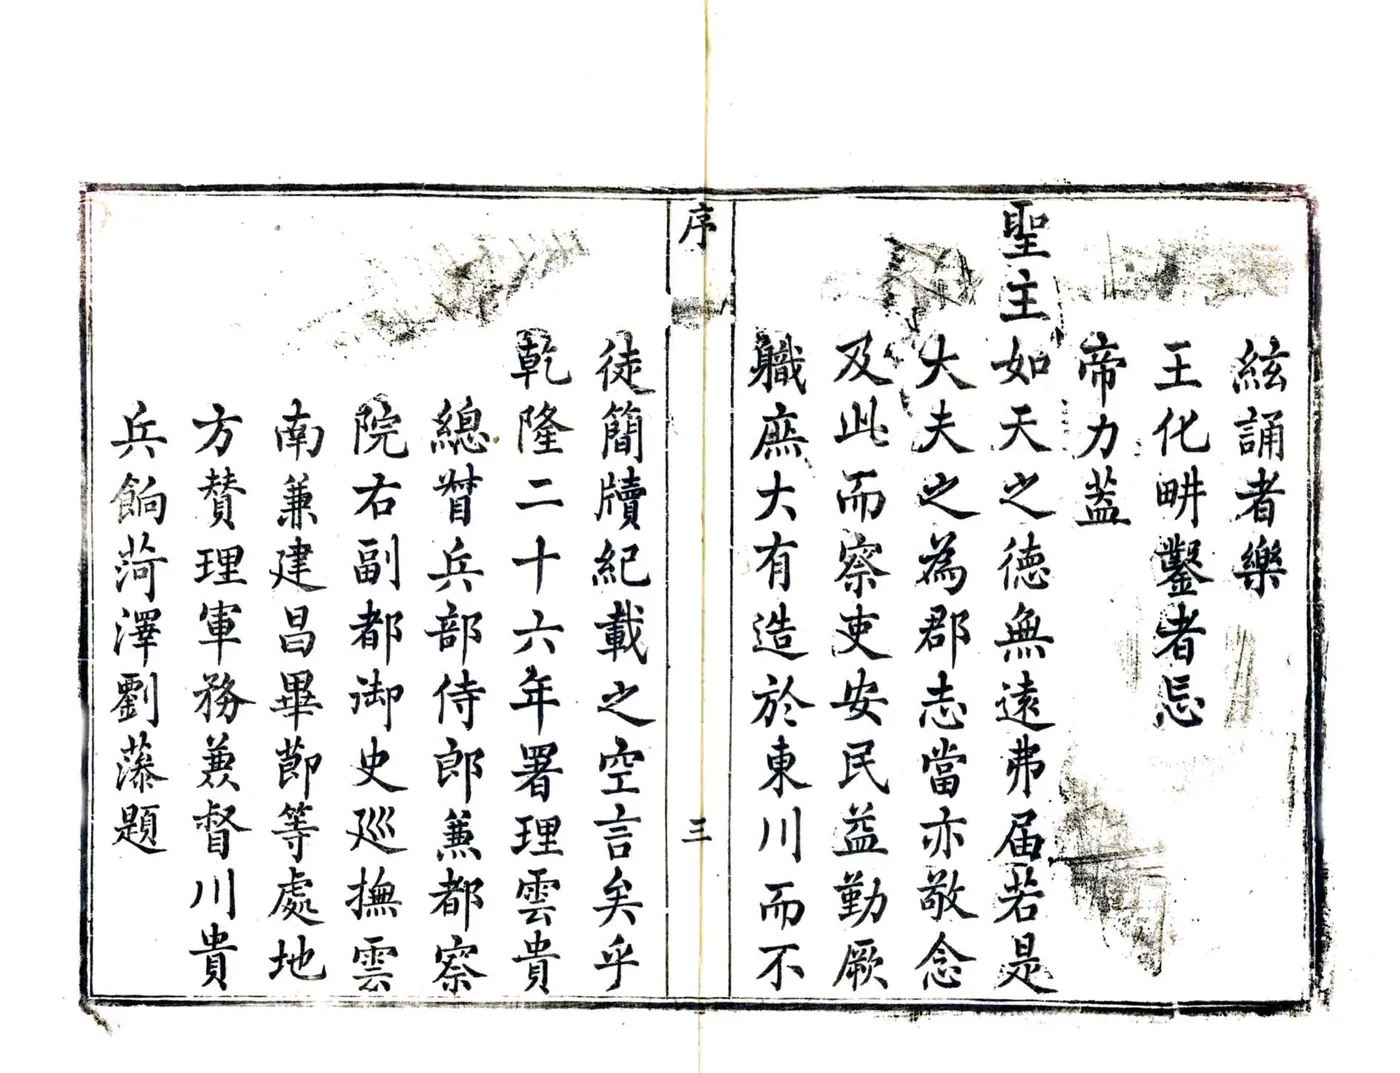 絃誦者樂
王化畊鑿者忘
帝力蓋
聖主如天之德無遠弗届若是
大夫之為郡志當亦敬念
及此而察吏安民益勤厥
軄庶大有造於東川而不
序
三
徒簡牘紀載之空言矣乎
乾隆二十六年署理雲貴
總督兵部侍郎兼都察
院右副都御史廵撫雲
南兼建昌畢莭等處地
方賛理軍務兼督川貴
兵餉菏澤劉藻題